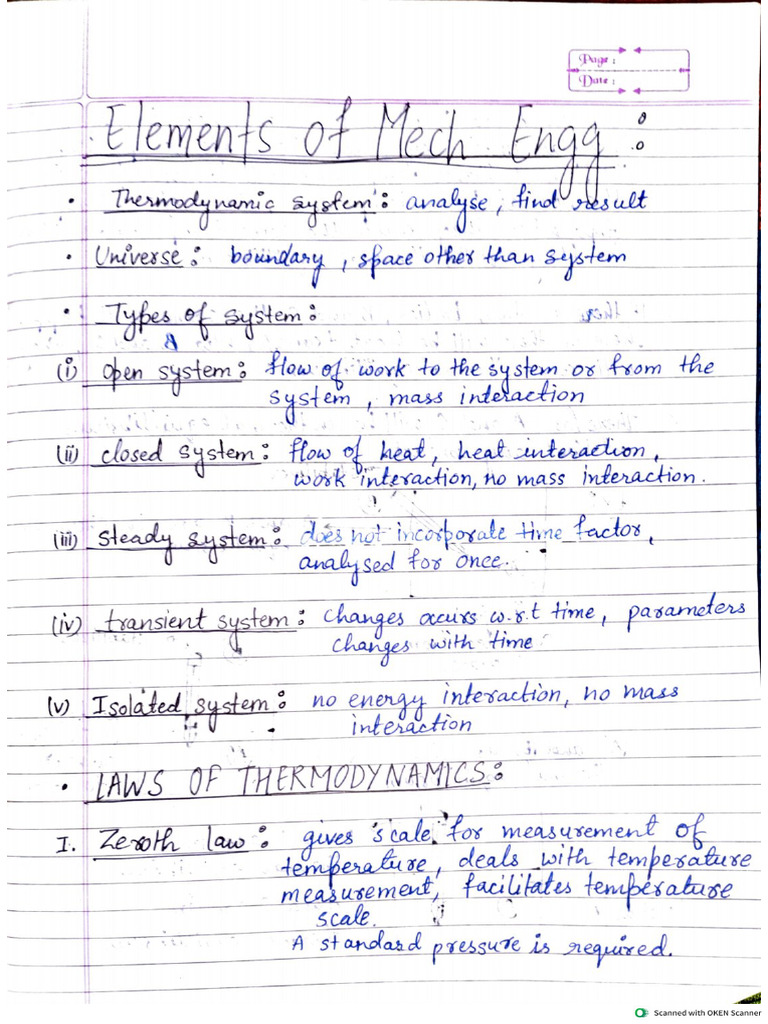 Page :
Date :
Elements of Mech Engg :
• Thermodynamic system : analyse, find result
• Universe : boundary, space other than system
• Types of system :
(i) Open system : flow of work to the system or from the
system, mass interaction
(ii) closed system : flow of heat, heat interaction,
work interaction, no mass interaction.
(iii) Steady system : does not incorporate time factor,
analysed for once.
(iv) transient system : changes occurs w.r.t time, parameters
changes with time
(v) Isolated system : no energy interaction, no mass
interaction
• LAWS OF THERMODYNAMICS :
I. Zeroth law : gives scale for measurement of
temperature, deals with temperature
measurement, facilitates temperature
scale.
A standard pressure is required.
Scanned with OKEN Scanner